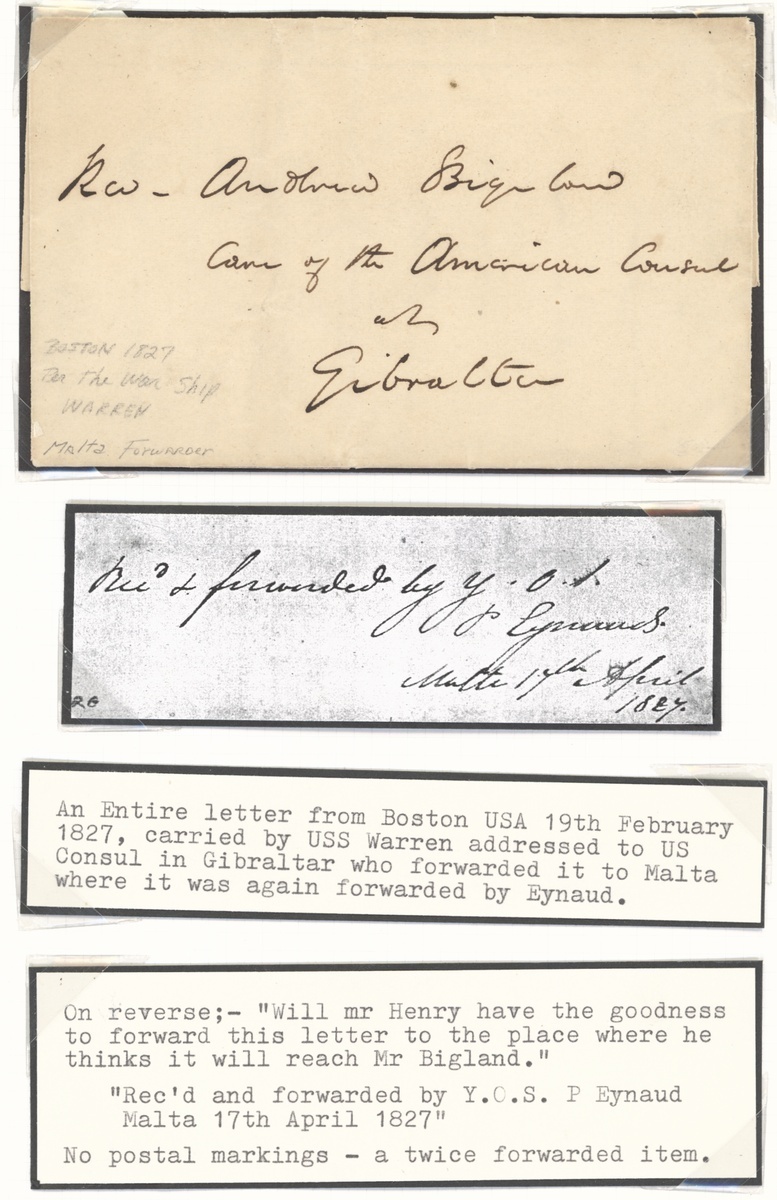 Rev- Andrew Bigelow
Care of the American Consul
at
Gibraltar
BOSTON 1827
Per the War Ship
WARREN
Malta Forwarder
Rec'd & forwarded by Y. O. S.
P Eynaud.
Malta 17th April
1827.
An Entire letter from Boston USA 19th February
1827, carried by USS Warren addressed to US
Consul in Gibraltar who forwarded it to Malta
where it was again forwarded by Eynaud.
On reverse;- "Will mr Henry have the goodness
to forward this letter to the place where he
thinks it will reach Mr Bigland."
"Rec'd and forwarded by Y.O.S. P Eynaud
Malta 17th April 1827"
No postal markings - a twice forwarded item.